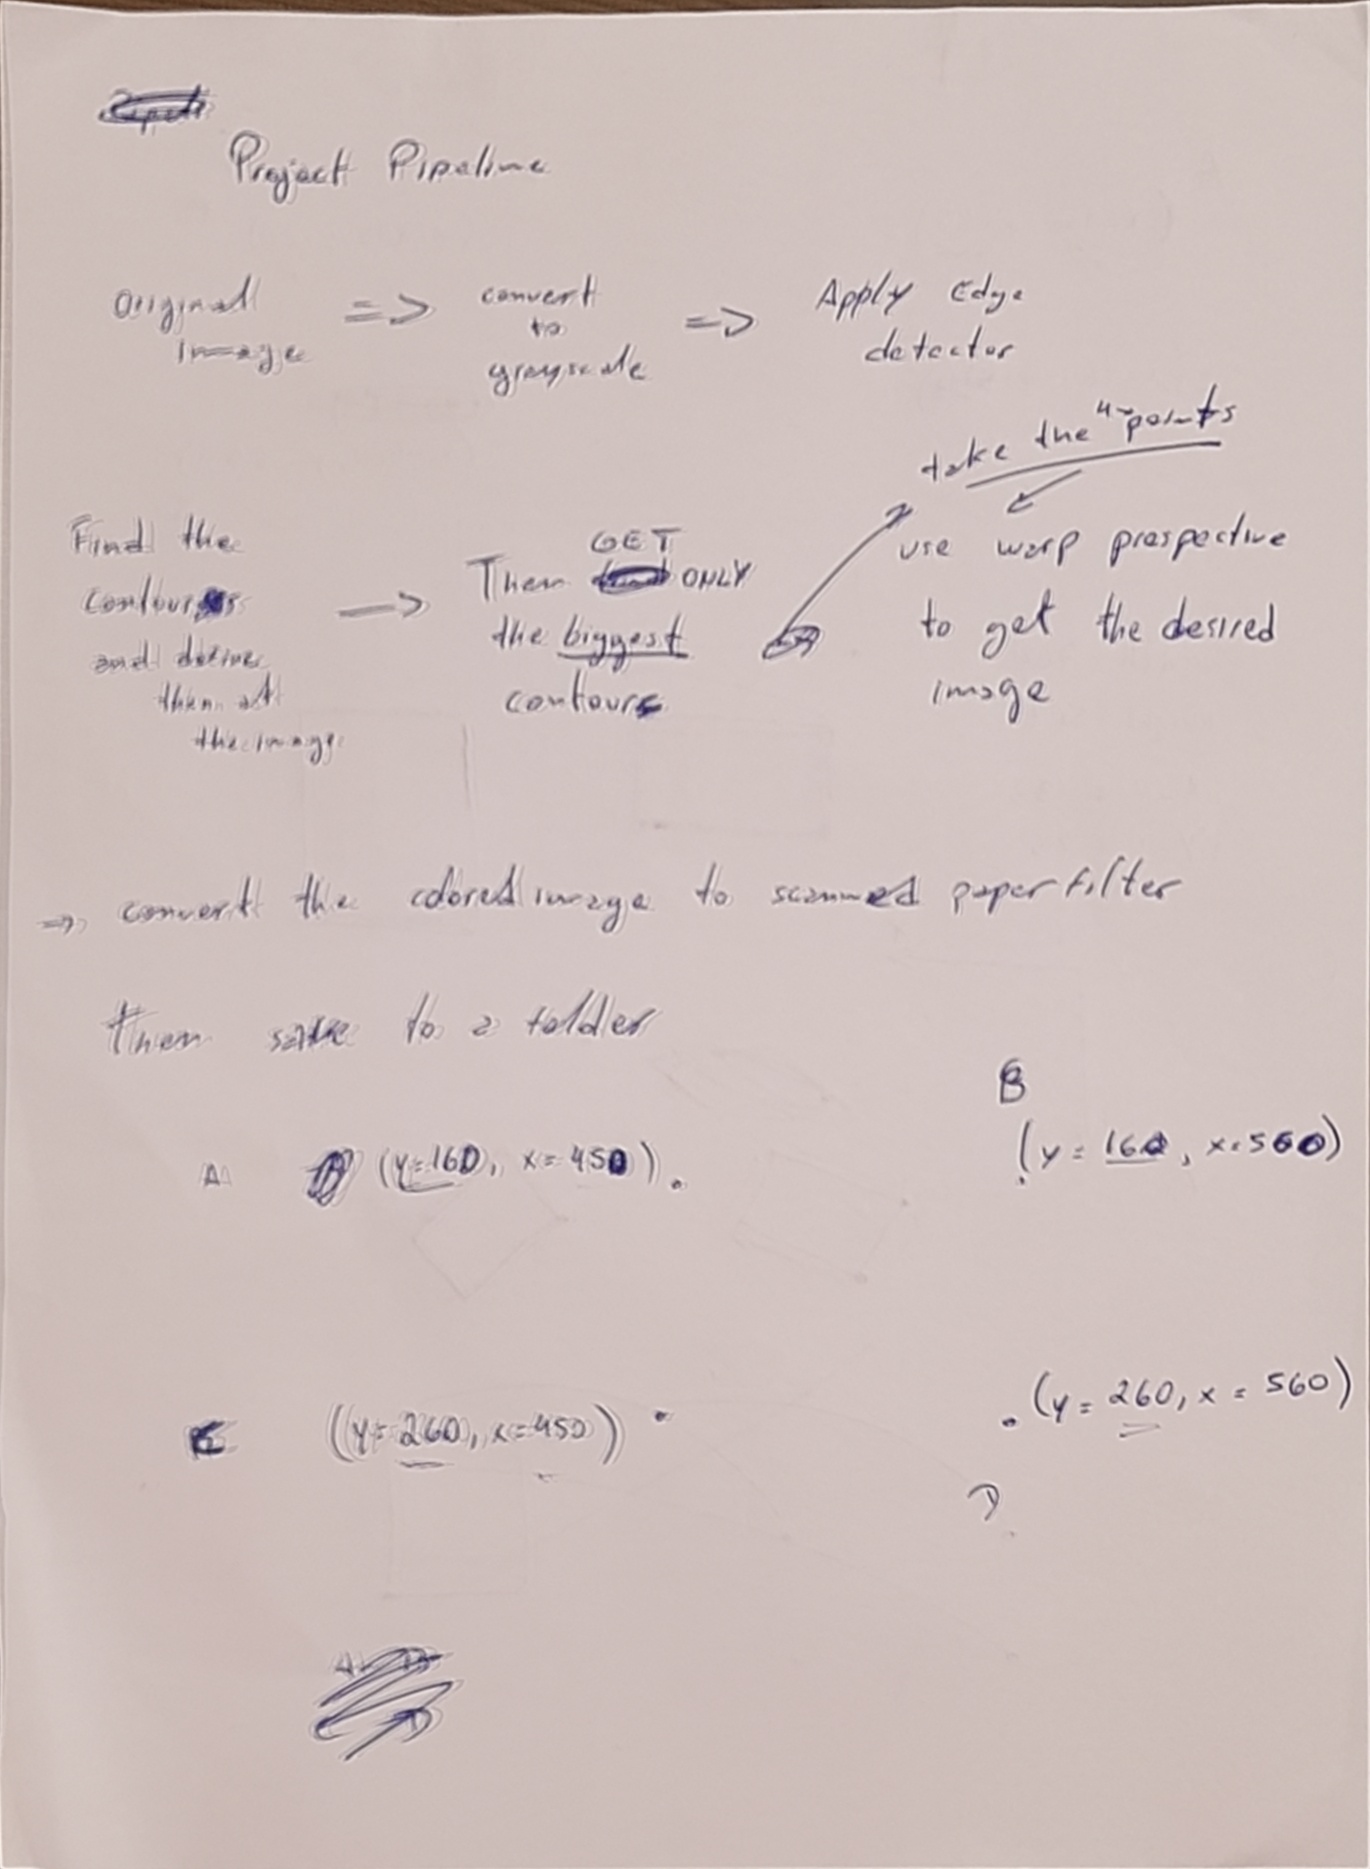 Project Pipeline
Original
image
=>
convert
to
grayscale
=>
Apply Edge
detector
Find the
contours
and
them at
the image
→
GET
Then ONLY
the biggest
contours
take the 4 points
use warp prespective
to get the desired
image
=> convert the colored image to scanned paper filter
then save to a folder
A (y=160, x=450).
B
(y=160, x=560)
C (y=260, x=450)
(y=260, x=560)
D